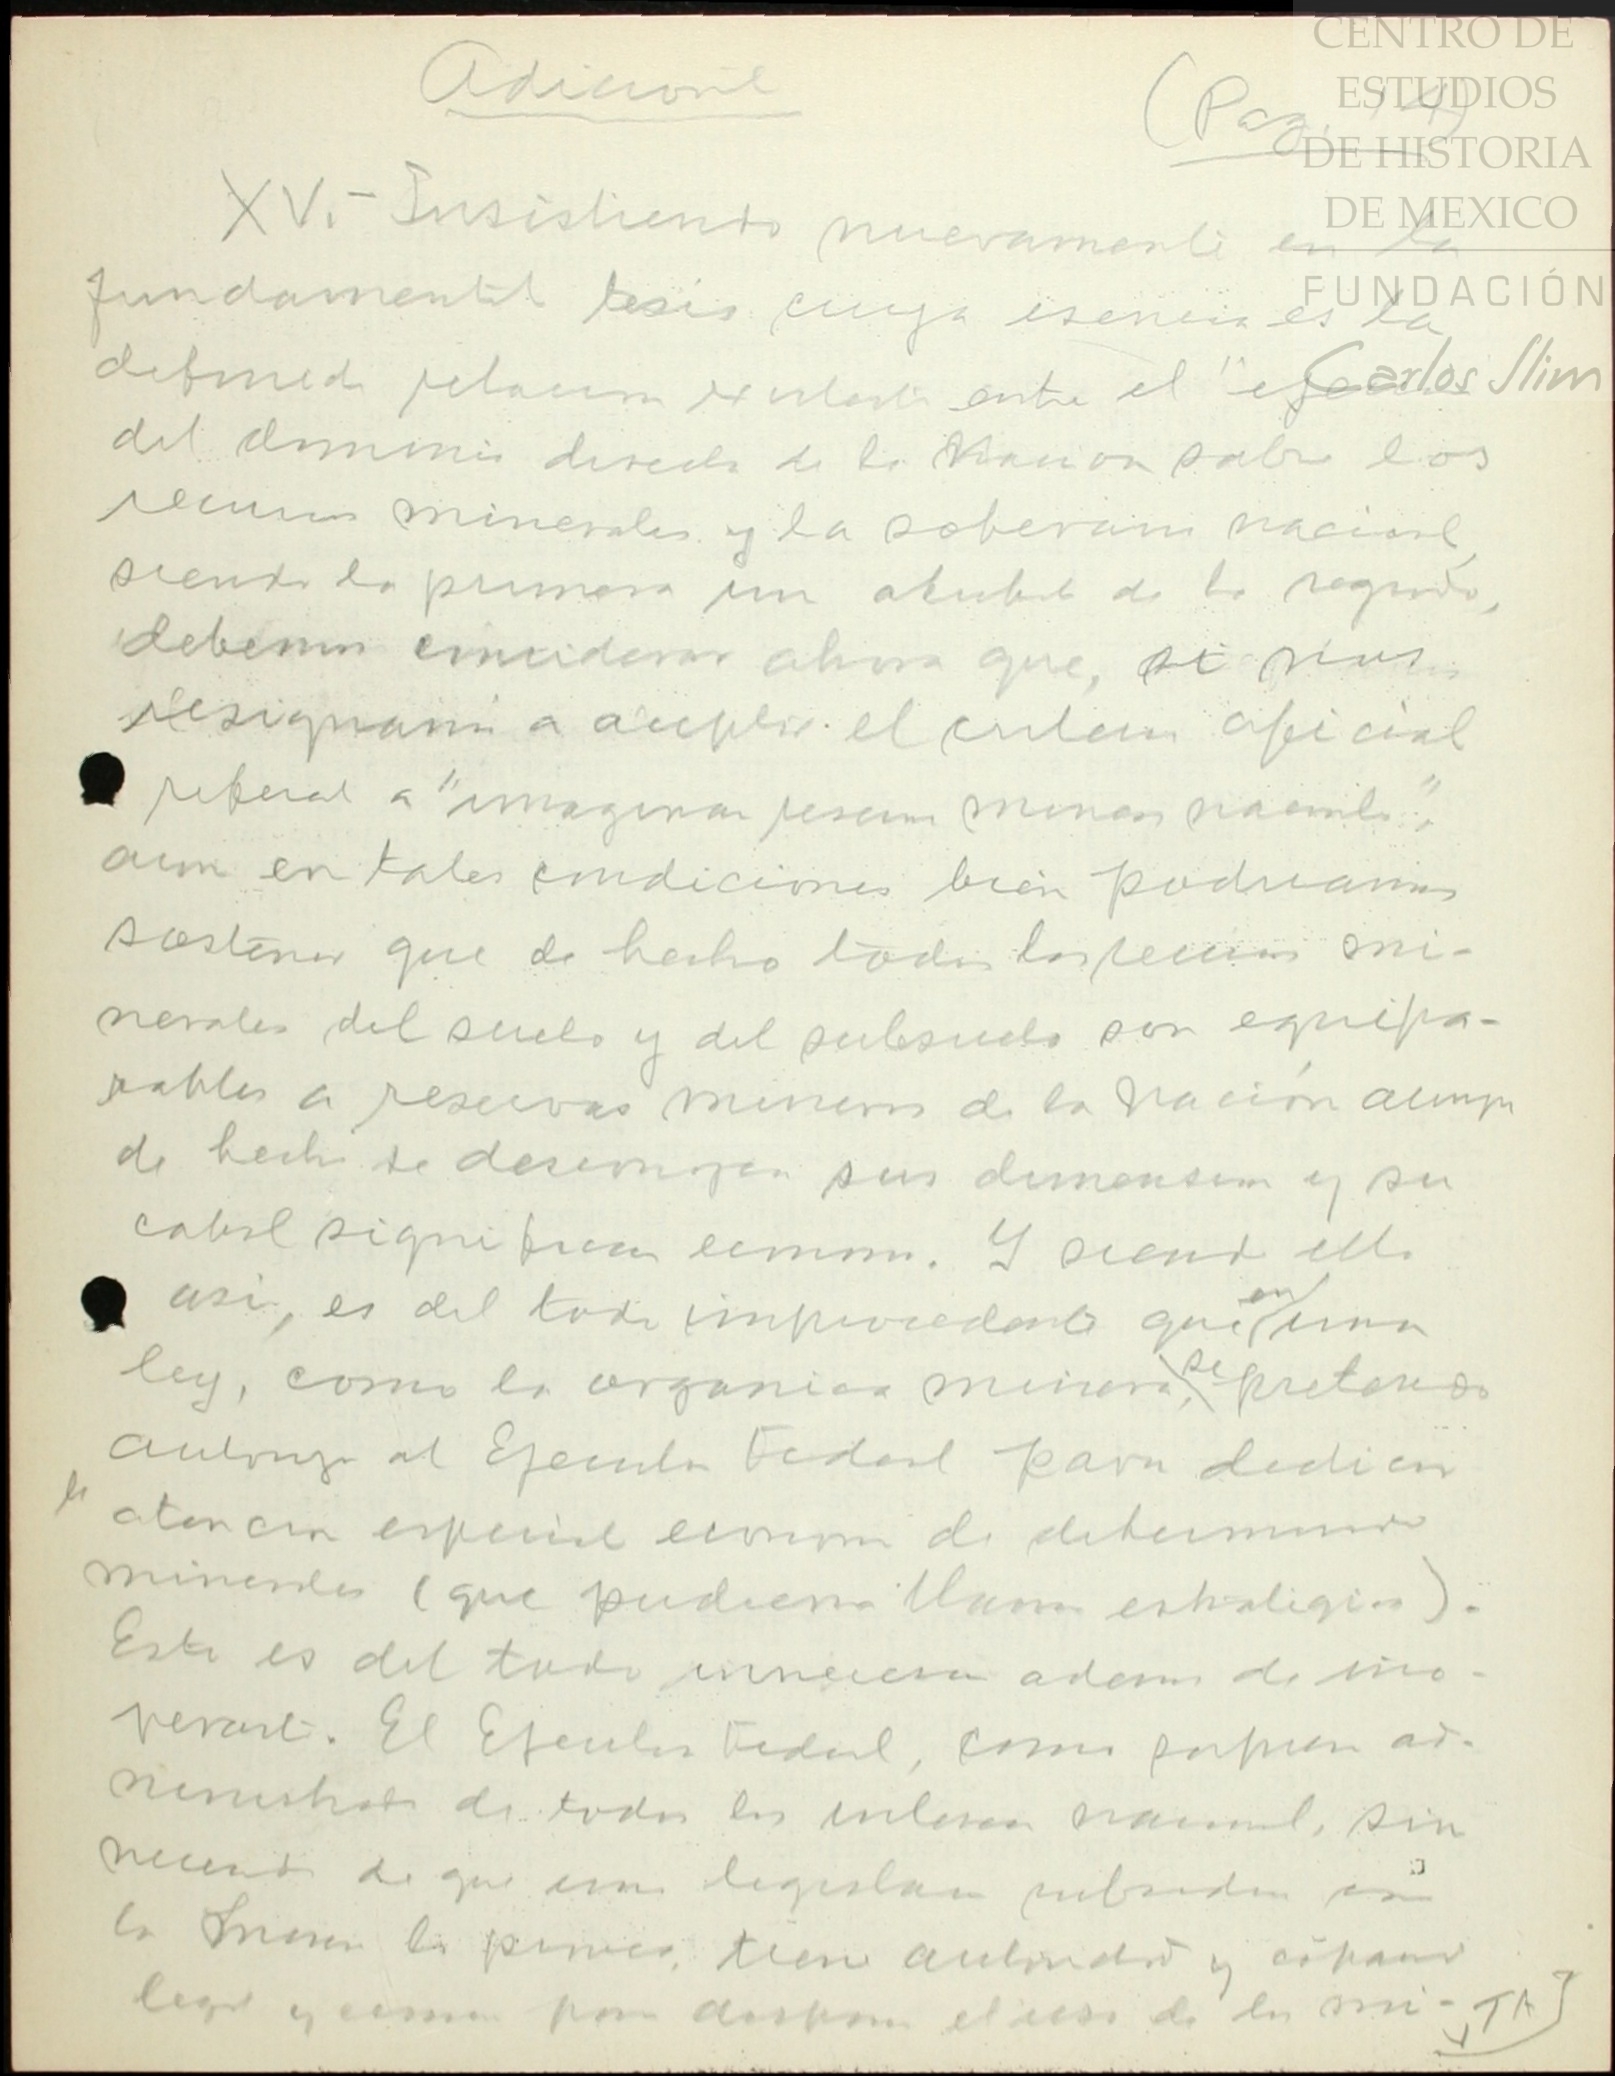 Adicional
(Pag. 14)
CENTRO DE
ESTUDIOS
DE HISTORIA
DE MEXICO
FUNDACIÓN
Carlos Slim
XV.- Insistiendo nuevamente en la
fundamental tesis cuya esencia es la
definida relacion existente entre el "
del dominio directo de la Nacion sobre los
recursos minerales y la soberania nacional,
siendo la primera un atributo de la segunda,
debemos considerar ahora que, si nos
resignaramos a aceptar el criterio oficial
referente a "imaginar reservas mineras nacionales",
aun en tales condiciones bien podriamos
sostener que de hecho todos los recursos mi-
nerales del suelo y del subsuelo son equipa-
rables a reservas mineras de la Nación aunque
de hecho se desconozcan sus dimensiones y su
cabal significacion economica. Y siendo ello
asi, es del todo improcedente que en una
ley, como la organica minera, se pretenda
autorizar al Ejecutivo Federal para dedicar
la atencion especial economica de determinados
minerales (que pudieran llamarse estrategicos).
Esto es del todo innecesario ademas de ino-
perante. El Ejecutivo Federal, como supremo ad-
ministrador de todos los intereses nacionales, sin
necesidad de que una legislacion
la minera lo prevea, tiene autoridad y capacidad
legal y para disponer el uso de los mi-